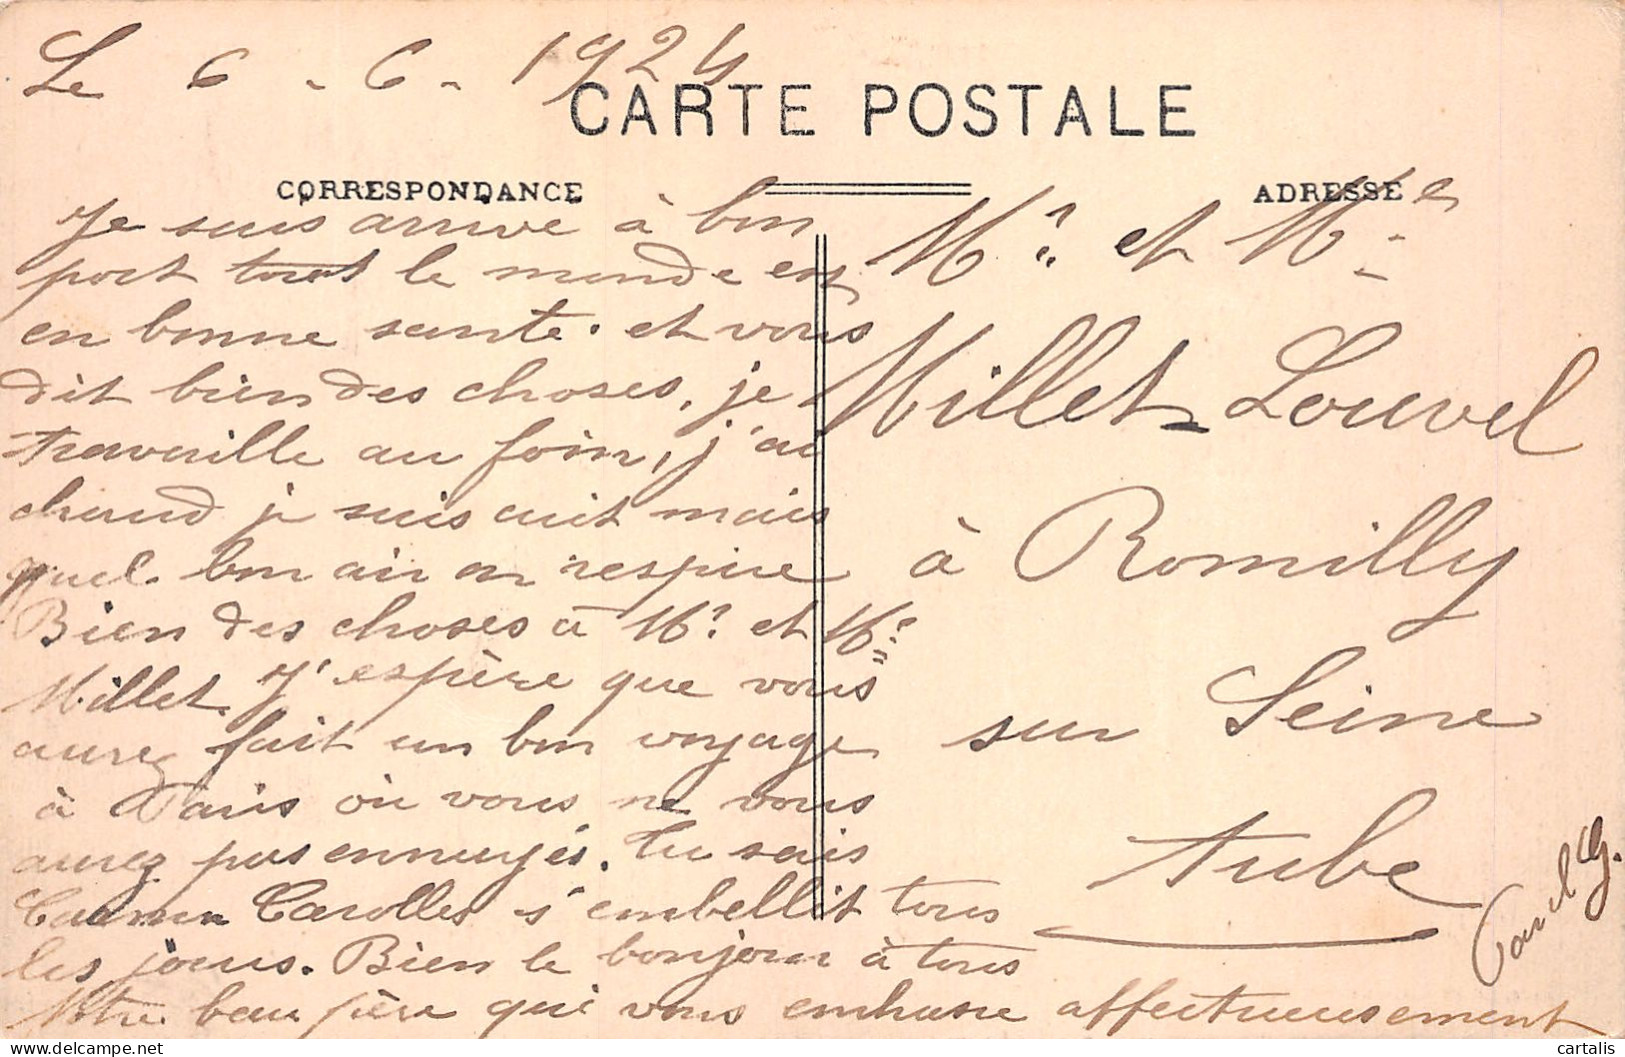 Le 6 - 6 - 1924
CARTE POSTALE
CORRESPONDANCE
ADRESSE
Je suis arrivé à bon
port tout le monde est
en bonne sante. et vous
dit bien des choses, je
travaille au foin, j'ai
chaud je suis cuit mais
quel bon air on respire
Bien des choses à Mr. et Me
Millet. J'espère que vous
aurez fait un bon voyage
à Paris où vous ne vous
aurez pas ennuyés. Tu sais
Carolles s'embellit tous
les jours. Bien le bonjour à tous
Votre beau père qui vous embrasse affectueusement
Mr. et Me
Millet-Louvel
à Romilly
sur Seine
Aube
cartalis